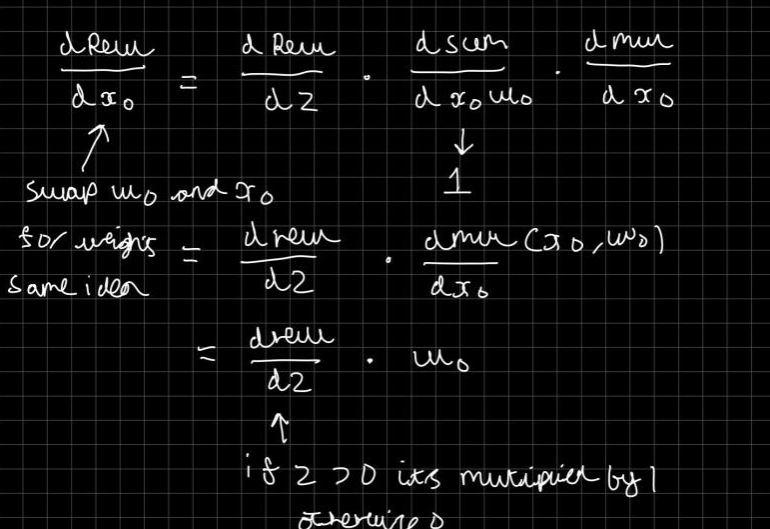 dRelu/dx₀ = dRelu/dz · dsum/dx₀w₀ · dmul/dx₀
↓
1
swap w₀ and x₀
for weights
same idea
= drelu/dz · dmul(x₀,w₀)/dx₀
= drelu/dz · w₀
if z > 0 its multiplied by 1
otherwise 0